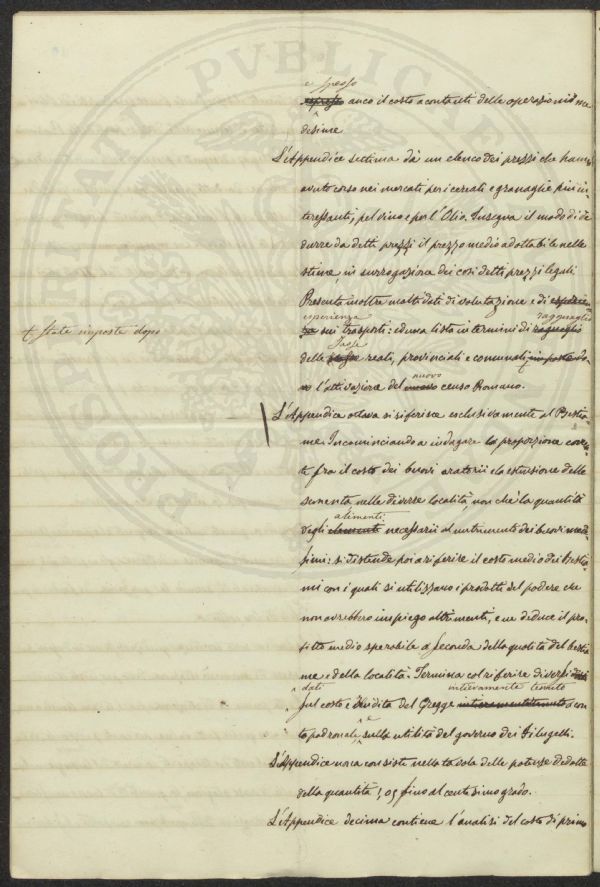 e spesso
espresso anco il costo a contanti delle operazioni me
desime
L'Appendice settima dà un elenco dei prezzi che hanno
avuto corso nei mercati per i cereali e granaglie più in-
teressanti, pel vino e per l'Olio. Insegna il modo di de
durre da detti prezzi il prezzo medio adottabile nelle
stime, in surrogazione dei così detti prezzi legali
Presenta inoltre molti dati di valutazione e di esperien
esperienza ragguaglio
za sui trasporti: ed una lista in termini di raguaglio
+ state imposte dopo
Tasse
delle tasse reali, provinciali e comunali imposte do-
nuovo
po l'attivazione del nuovo censo Romano.
L'Appendice ottava si riferisce esclusivamente al Bestia
me. Incominciando a indagare la proporzione coeren
te fra il costo dei buovi aratorii e la estensione delle
sementa nelle diverse località, non chè la quantità
alimenti
degli elementi necessarii al nutrimento dei buovi mede
simi: si distende poi a riferire il costo medio dei Bestia-
mi con i quali si utilizzano i prodotti del podere che
non avrebbero impiego altrimenti, e ne deduce il pro-
fitto medio sperabile a seconda della quotità del bestia
me e della località. Termina col riferire diversi dati
dati intieramente tenuto
sul costo e rendita del Gregge intieramente tenuto a con
e
to padronale, sulla utilità del governo dei Filugelli.
L'Appendice nona consiste nella tavola delle potenze dedotte
della quantità 1,05 fino al centesimo grado.
L'Appendice decima contiene l'analisi del costo di primo